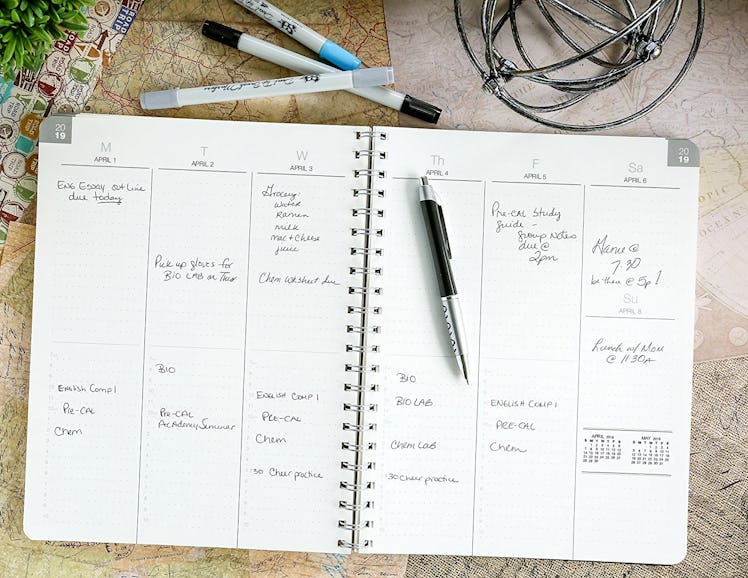 20
19
M
APRIL 1
ENG ESSAY out line
due today
English Comp 1
Pre-CAL
Chem
T
APRIL 2
Pick up gloves for
BIO LAB on Thur
BIO
Pre-CAL
Academy Seminar
W
APRIL 3
Grocery:
Water
Ramen
milk
mac + cheese
juice
Chem Worksheet due
ENGLISH COMP 1
PRE-CAL
Chem
:30 Cheer practice
Th
APRIL 4
BIO
BIO LAB
Chem LAB
:30 Cheer practice
F
APRIL 5
Pre-CAL Study
guide -
group Notes
due @
2pm
ENGLISH COMP 1
PRE-CAL
Chem
20
19
Sa
APRIL 6
Game @
7:30
be there @ 5p!
Su
APRIL 8
Lunch w/ Mom
@ 11:30A
APRIL 2019
S M T W T F S
MAY 2019
S M T W T F S